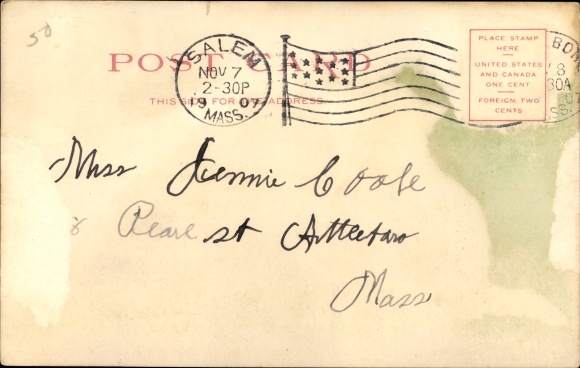 50
POST CARD
THIS SIDE FOR THE ADDRESS
SALEM
NOV 7
2-30P
1907
MASS.
PLACE STAMP
HERE
UNITED STATES
AND CANADA
ONE CENT
FOREIGN, TWO
CENTS
BORO
8
30A
Miss Jennie Coole
8 Pearl st Attleboro
Mass